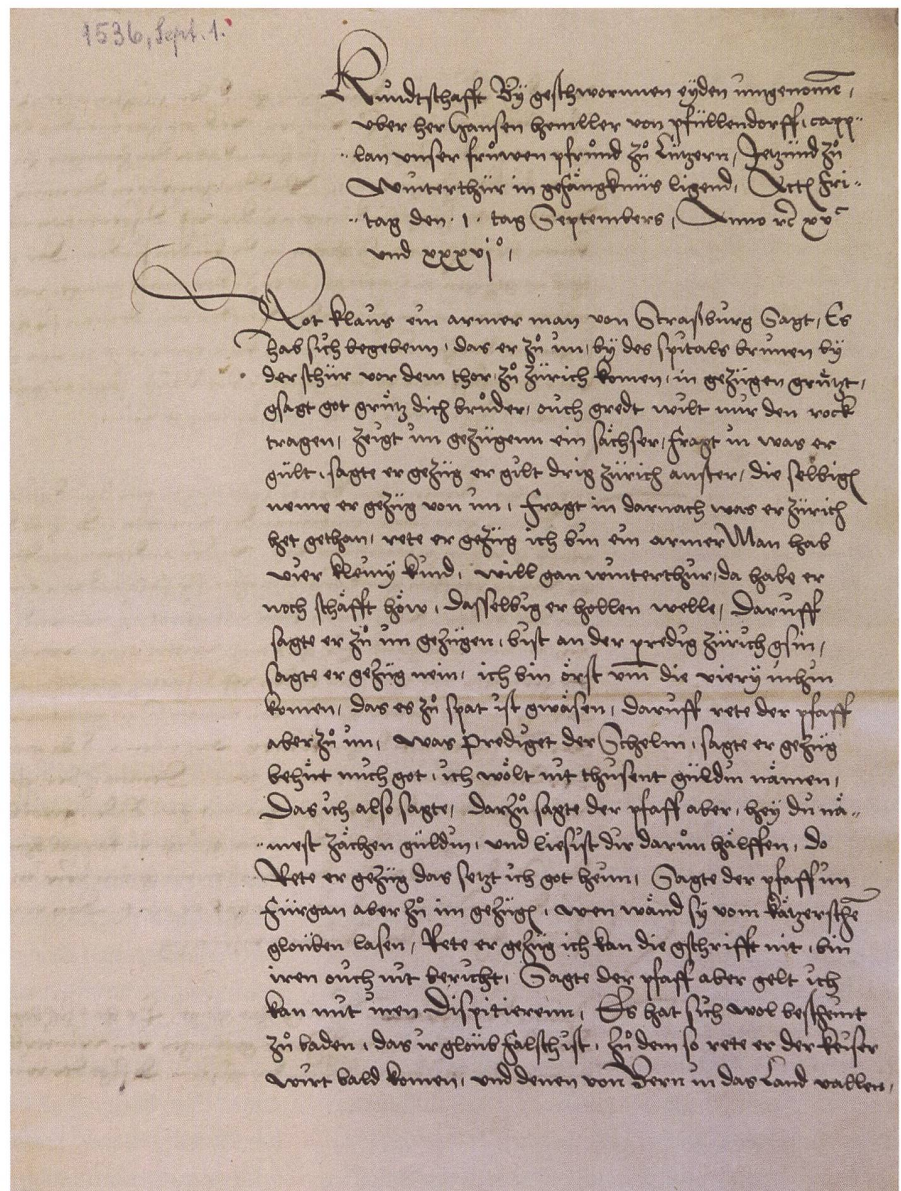 1536, Sept. 1.
Kundtschafft By geschwornnen eyden inngenomē,
uber her Hansen Hemller von Pfüllendorff, capp-
-lan unser frůwen pfrůnd zů Lützern, Jetzünd zů
Winterthür in gefängknüs ligend, Fri-
-tag den 1. tag Septembers, Anno xvc
und xxxvjo,
Rot Klaus ein armer man von Straßburg Sagt, Es
hab sich begebenn, das er zů im, by des spitals brunen by
der schür vor dem thor zů Zürich komen, in gezügen grützt,
gsagt got grütz dich brůder, ouch gredt wilt mir den rock
tragen, zeigt im gezügenn ein sächser, fragt in was er
gült, sagte er gezüg er gilt drig Zürich anster, die selbigē
neme er gezüg von im, fragt in darnach was er Zürich
het gethan, rete er gezüg ich bin ein armer Man hab
vier kleiny kind, will gan Winterthur, da habe er
noch schäfft höw, dasselbig er hollen welle, Daruff
sagte er zů im gezügen, bist an der predig Zürich gsin,
sagte er gezüg nein, ich bin örst um̄ die viery inhin
komen, das es zů spat ist gwäsen, daruff rete der pfaff
aber zů im, was Prediget der Schelm, sagte er gezüg
behüt mich got, ich wölt nit thusent güldin nämen,
Das ich also sagte, darzů sagte der pfaff aber, hey du nä-
-mest zächen güldin, und liesist dir darin hälffen, do
Rete er gezüg das setzt ich got heim, Sagte der pfaff im
fürgan aber zů im gezügē, wen wänd sy vom kätzerschē
glouben lasen, Rete er gezüg ich kan die gschrifft nit, bin
iren ouch nit bericht, Sagte der pfaff aber gelt ich
kan mit inen Dispitierenn, Es hat sich wol bescheint
zů baden, das ir gloub falsch ist, zů dem so rete er der keiser
wirt bald komen, und denen von Bern in das Land vallen,